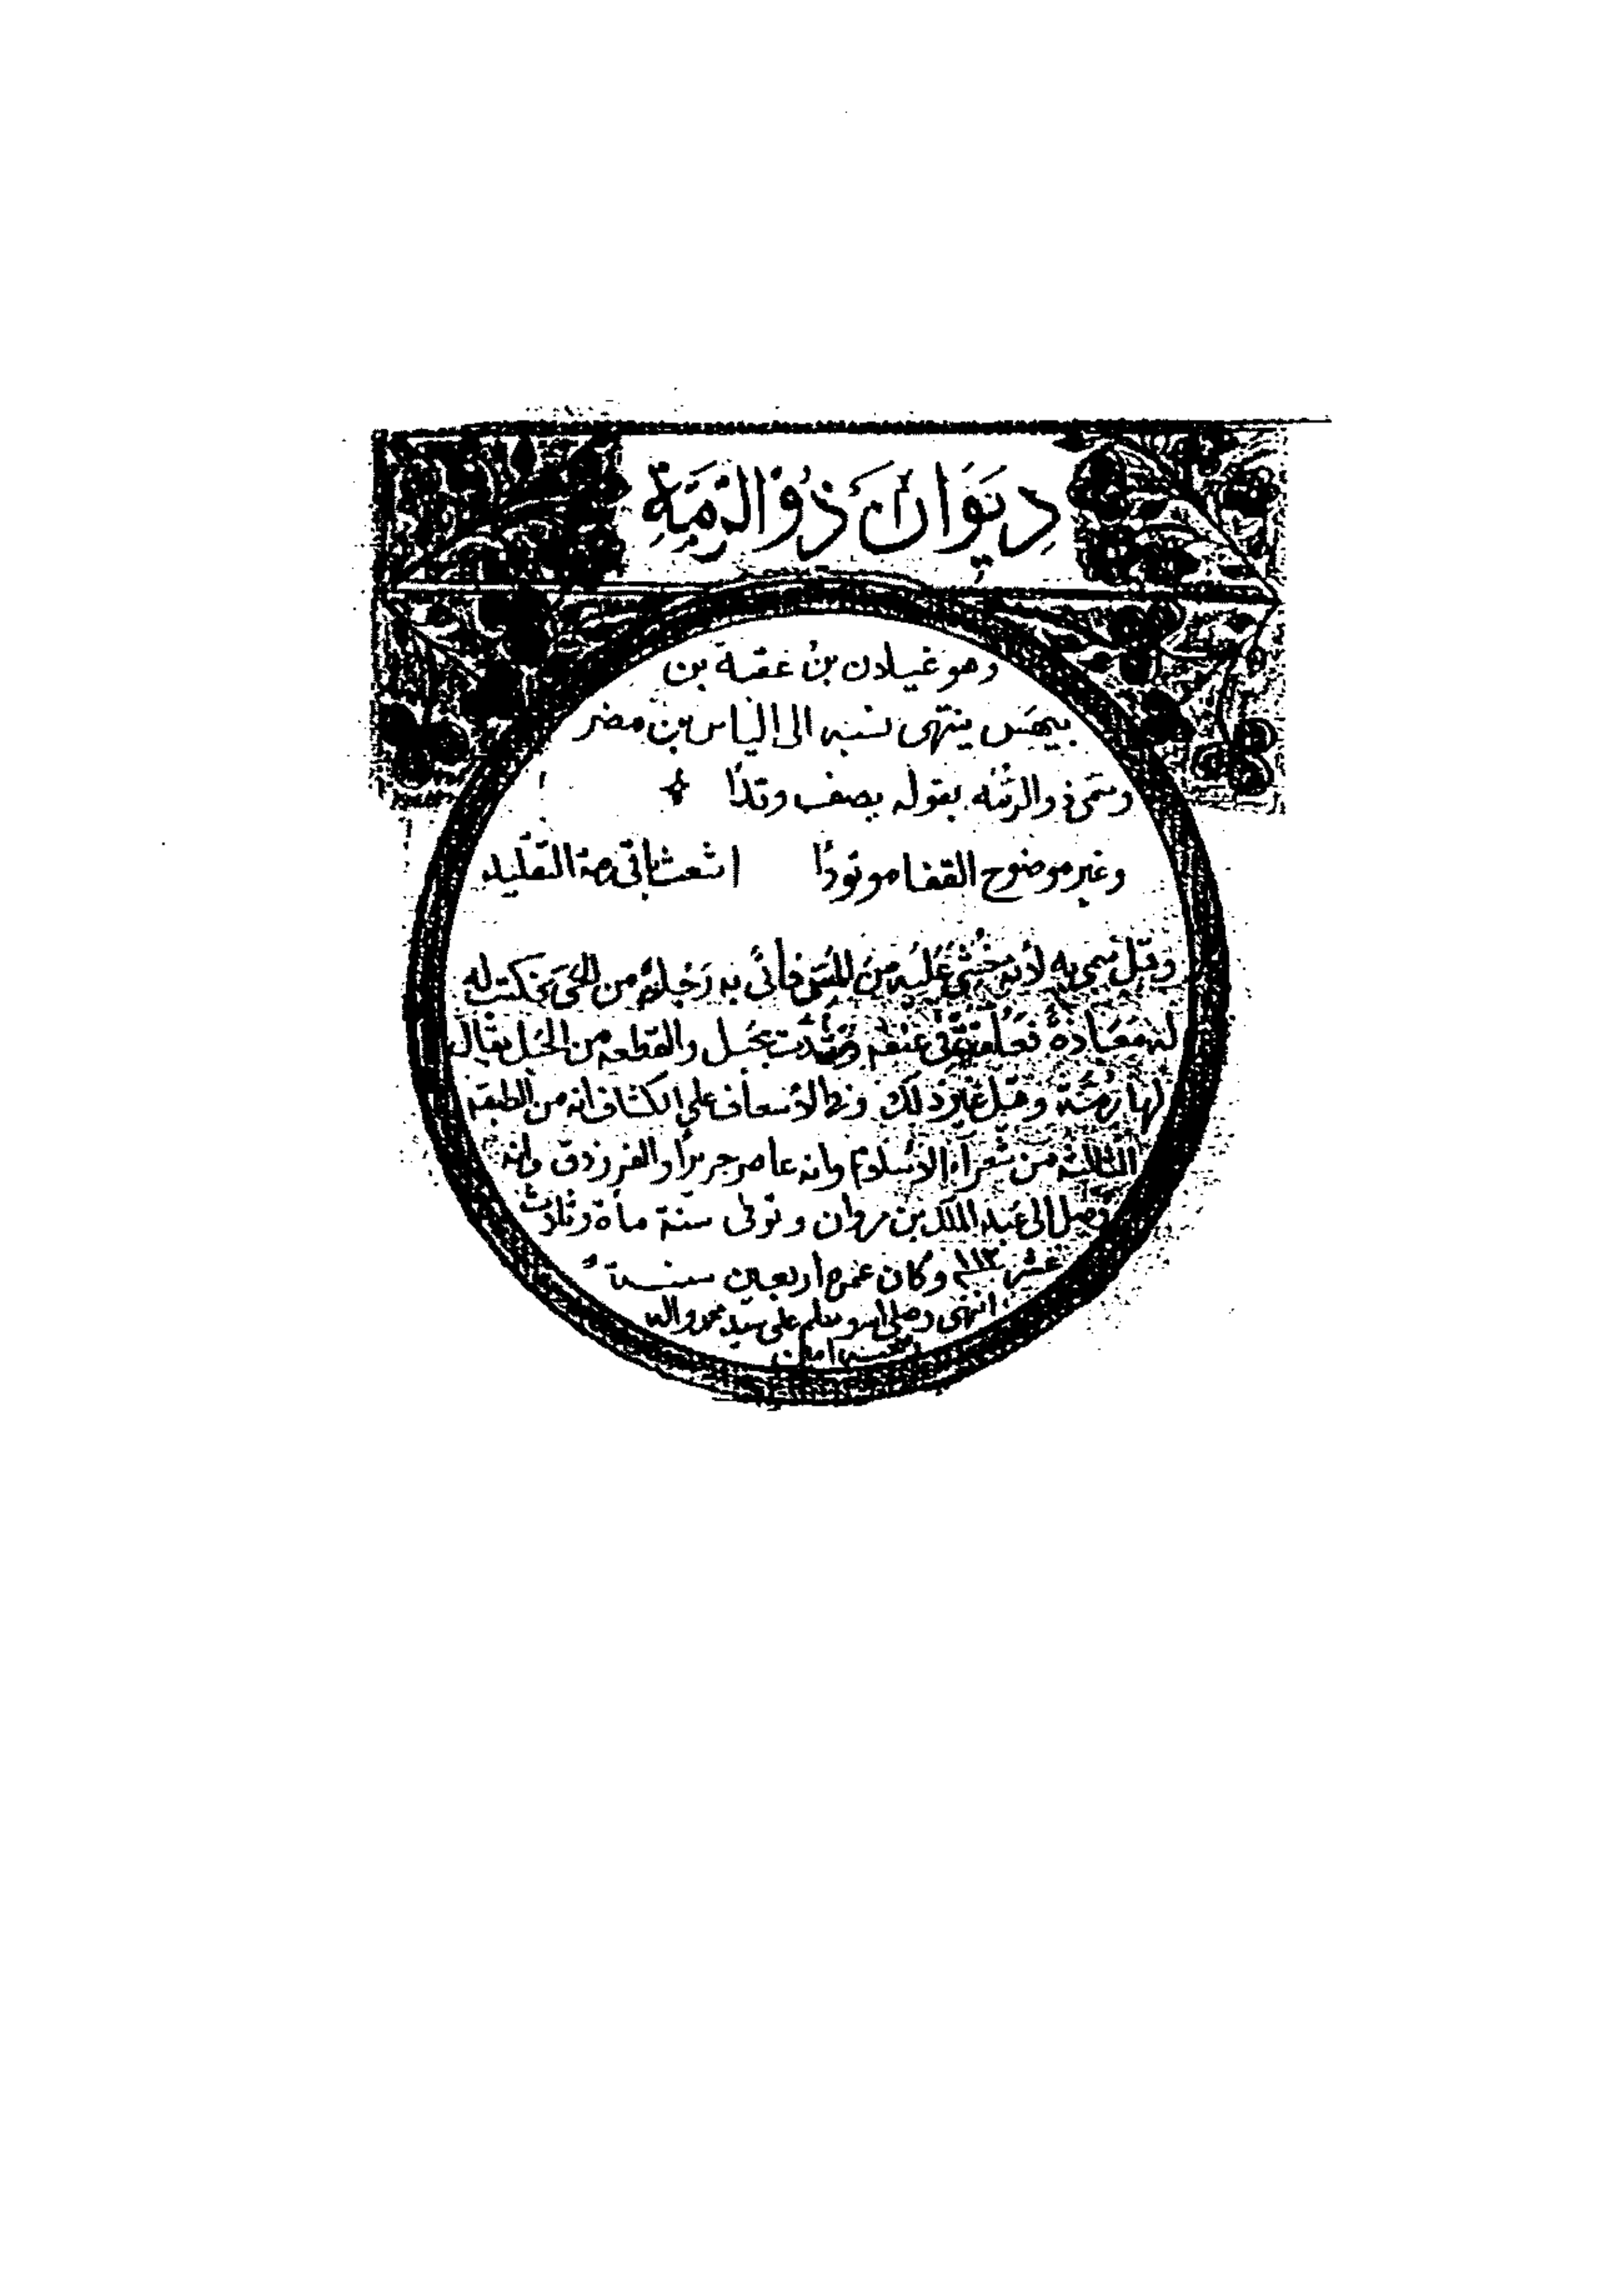 دِيوَانُ ذُو الرُّمَّةِ
وهو غيلان بن عقبة بن
بيهس ينتهى نسبه الى الياس بن مضر
وسمى ذو الرمّه بقوله يصف وتدًا
وغير موضوح القفا موتودًا اشعث باقى رمة التقليد
وقيل سمى به لأنه خشى عليه من المس فأتى به رجلا من الحى فكتب له
له معاذة فعلقت فى عنقه وشدّت بحبل والقطعه من الحبل يقال
لها رمّة وقيل غير ذلك وفى الاسعاف على الكشاف انه من الطبقة
الثالثه من شعرآء الاسلام وانه عاصر جريرًا والفرزدق وانه
وصل الى عبد الملك بن مروان وتوفى سنة مأة وثلاث
عشر ١١٣ وكان عمره اربعين سنة
انتهى وصلى الله وسلم على سيد محمد واله
وصحبه امين